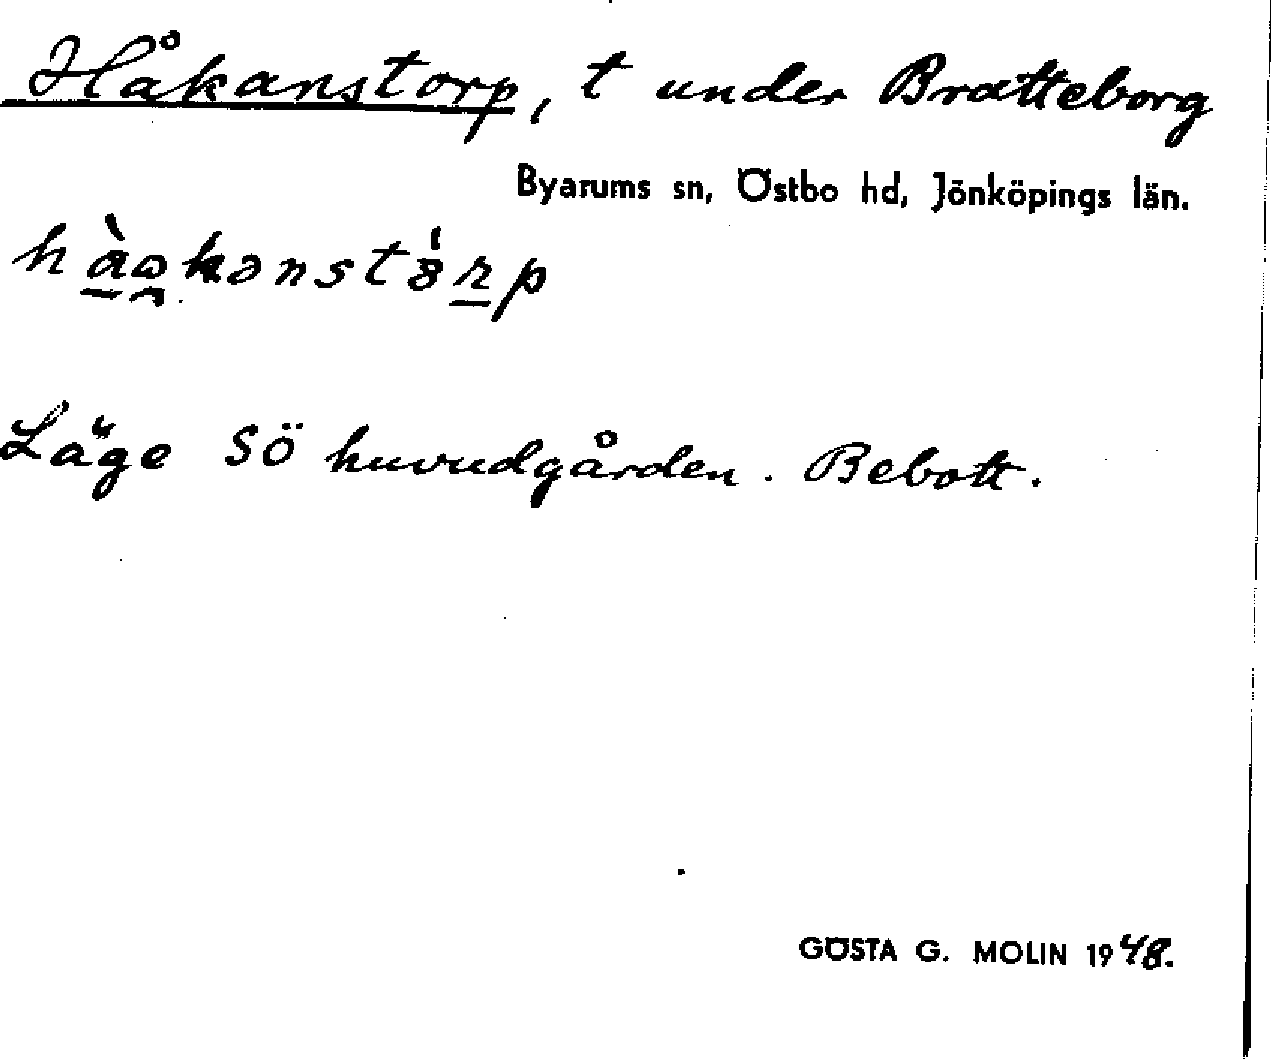 Håkanstorp, t under Bratteborg
Byarums sn, Östbo hd, Jönköpings län.
Läge SÖ huvudgården. Bebott.
GÖSTA G. MOLIN 1948.